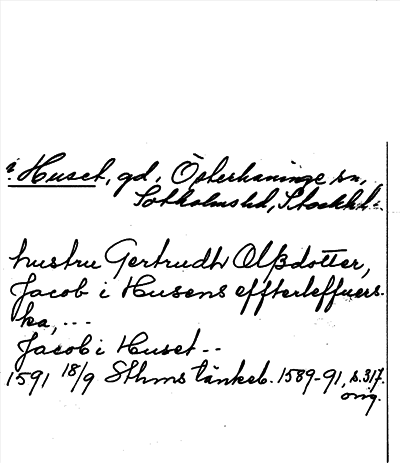 i Huset, gd, Österhaninge sn,
Sotholms hd, Stockh. l.
hustru Gertrudh Olßdotter,
Jacob i Husens effterleffuers-
ka, ---
Jacob i Huset --
1591 18/9 Sthms tänkeb. 1589-91, s. 317.
orig.